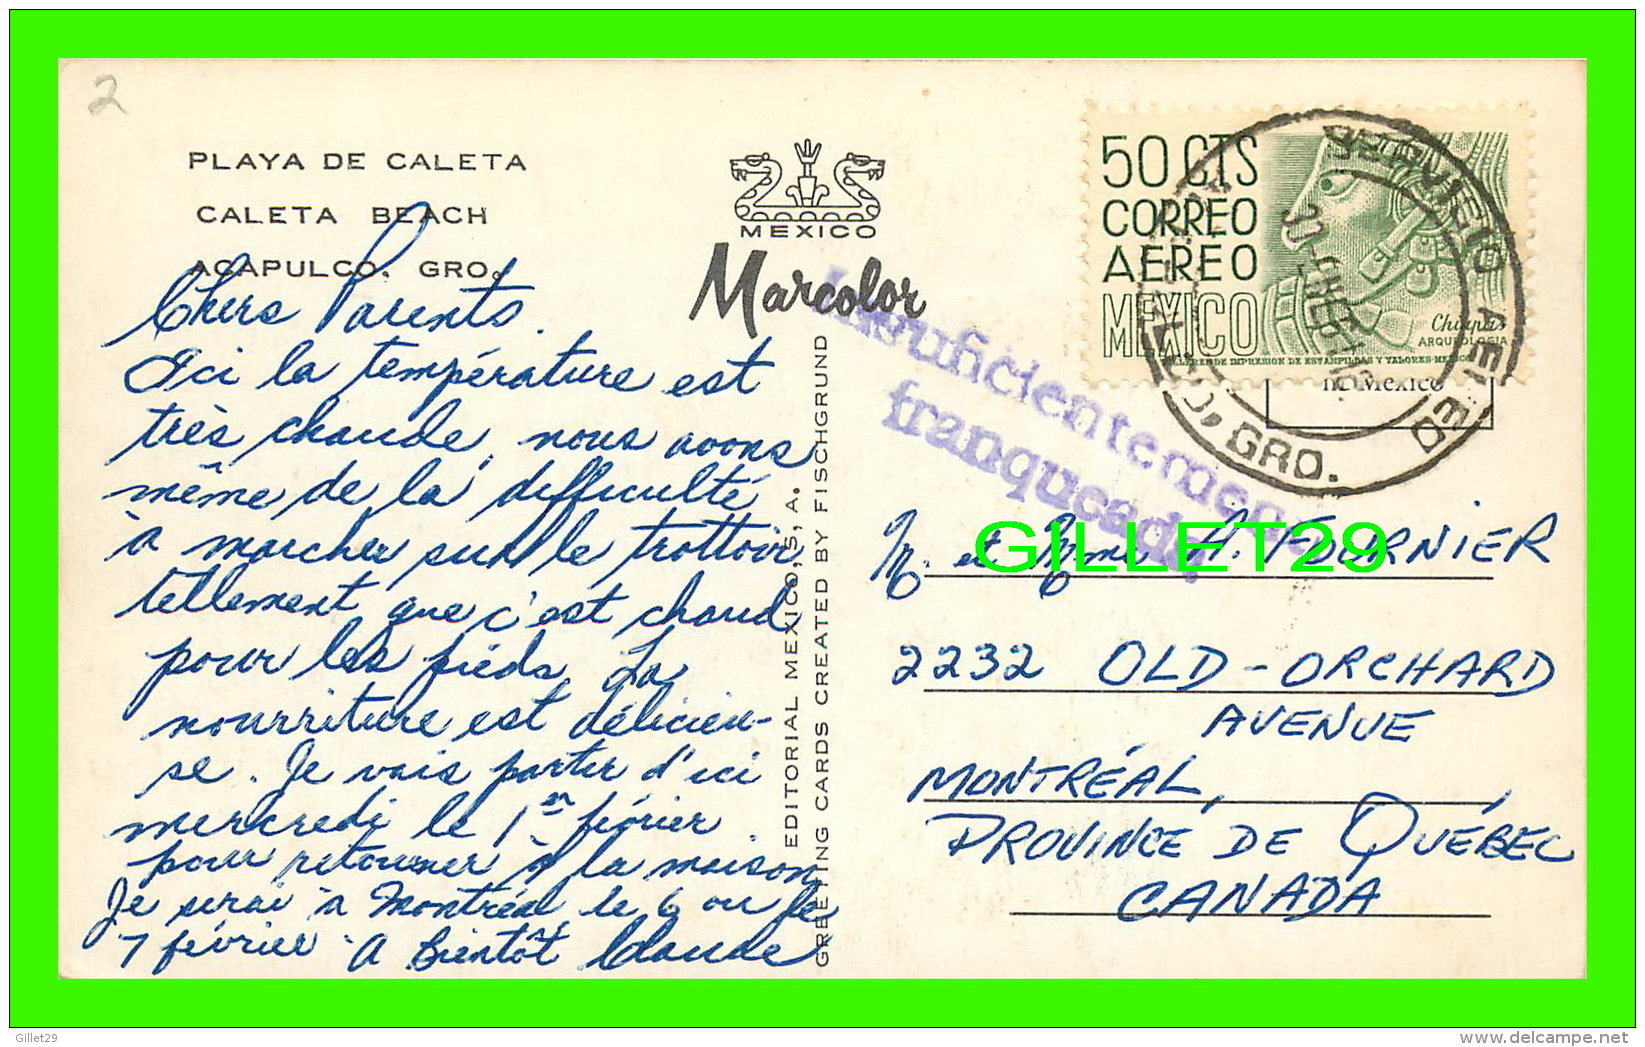 2
PLAYA DE CALETA
CALETA BEACH
ACAPULCO, GRO.
Chers Parents.
Ici la température est
très chaude, nous avons
même de la difficulté
à marcher sur le trottoir
tellement que c'est chaud
pour les pieds. La
nourriture est délicieu-
se. Je vais partir d'ici
mercredi le 1er février
pour retourner à la maison
Je serai à Montréal le 6 ou le
7 février. A Bientôt Claude
MEXICO
Marcolor
EDITORIAL MEXICO, S, A.
GREETING CARDS CREATED BY FISCHGRUND
Insuficientemente
franqueada
50 CTS
CORREO
AEREO
MEXICO
Chiapas
ARQUEOLOGIA
TALLERES DE IMPRESION DE ESTAMPILLAS Y VALORES-MEXICO
AEREO
GRO.
Mexico
M. et Mme H. FOURNIER
GILLET29
2232 OLD-ORCHARD
AVENUE
MONTRÉAL,
PROVINCE DE QUÉBEC
CANADA
Gillet29
delcampe.net